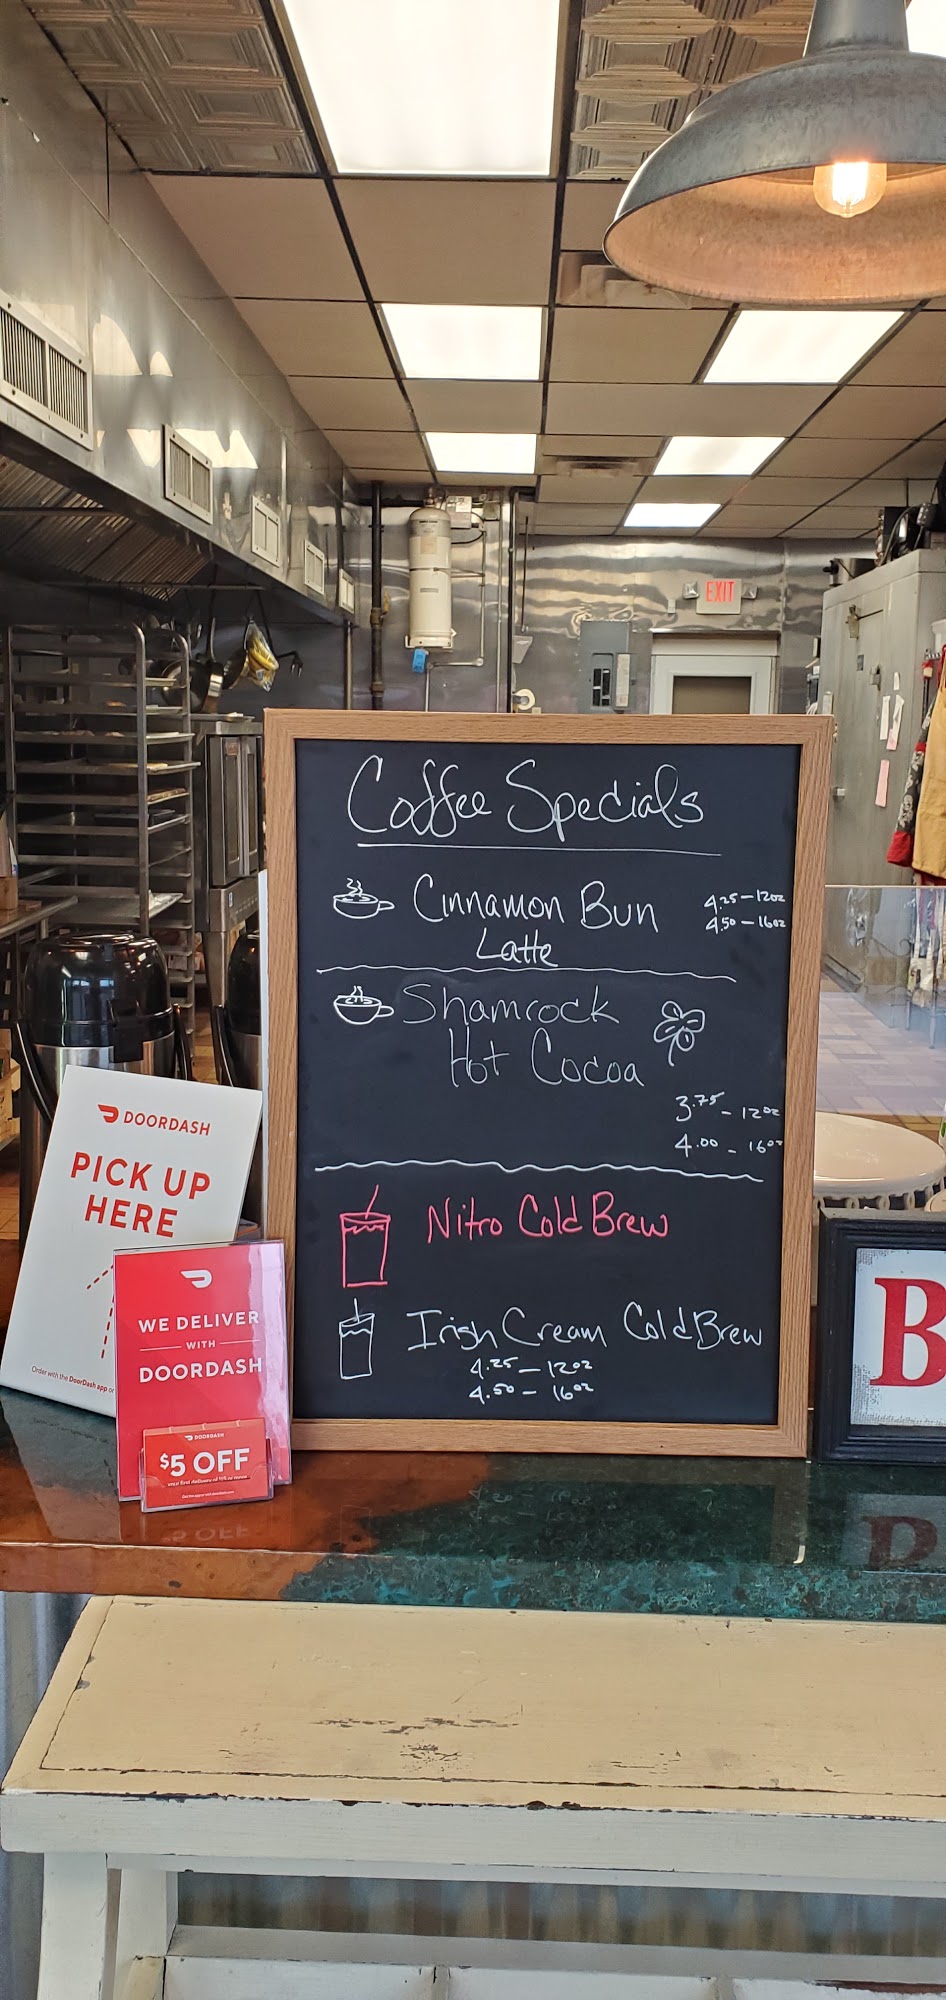 EXIT
Coffee Specials
Cinnamon Bun
Latte
4.25 - 12oz
4.50 - 16oz
Shamrock
Hot Cocoa
3.75 - 12oz
4.00 - 16oz
Nitro Cold Brew
Irish Cream Cold Brew
4.25 - 12oz
4.50 - 16oz
DOORDASH
PICK UP
HERE
Order with the DoorDash app or
WE DELIVER
WITH
DOORDASH
DOORDASH
$5 OFF
B